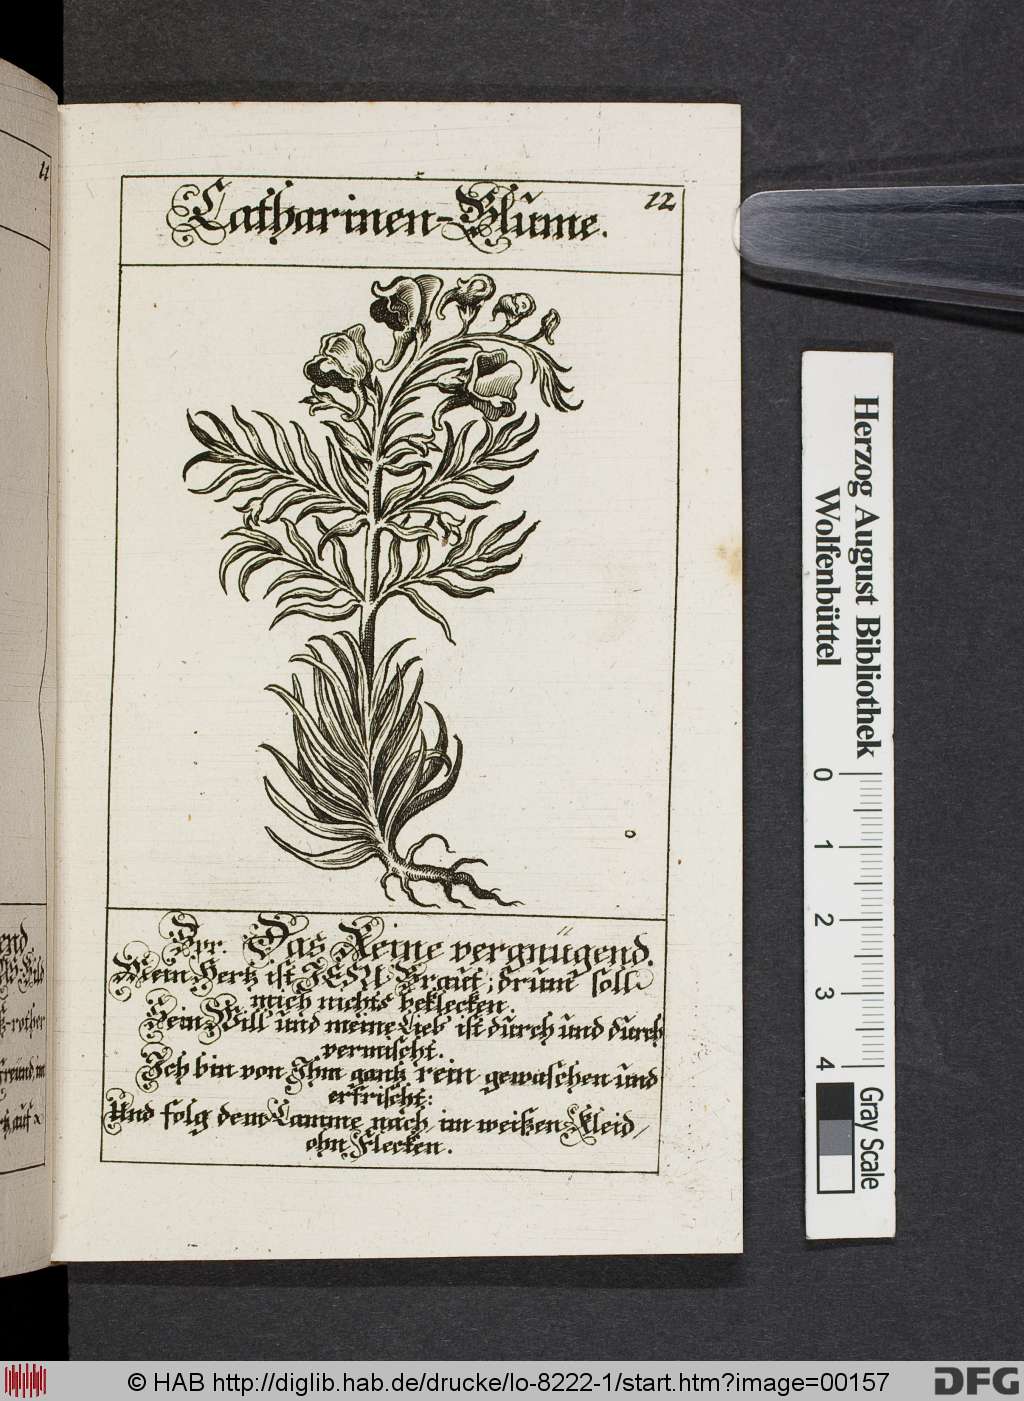 11
12
Catharinen-Blume.
end.
-Bild
-rother
freünd, im
auf
Spr. Das Reine vergnügend.
Mein Hertz ist JESU Braut; drum soll
mich nichts beklecken.
Sein Will und meine Lieb ist durch und durch
vermischt.
Ich bin von Ihm gantz rein gewaschen und
erfrischt:
Und folg dem Lamme nach, im weißen Kleid/
ohn Flecken.
Herzog August Bibliothek
Wolfenbüttel
0 1 2 3 4
Gray Scale
© HAB http://diglib.hab.de/drucke/lo-8222-1/start.htm?image=00157
DFG